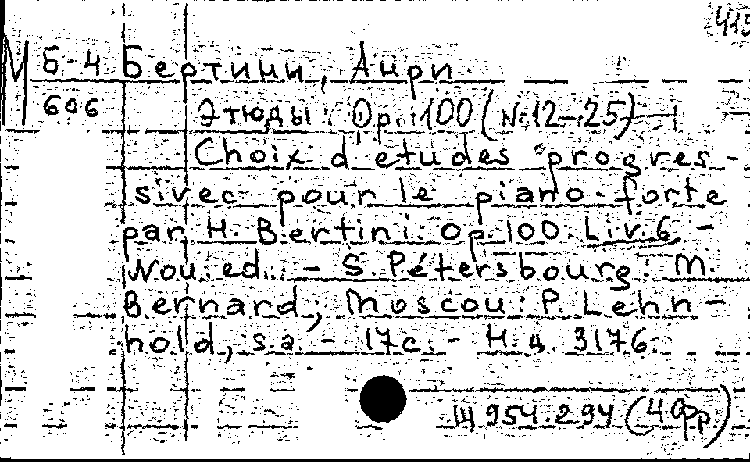 415
М Б-4 Бертини, Анри.
606 Этюды: Op.: 100 (№ 12-25)
Choix d'etudes progres-
sivec pour le piano-forte
par H. Bertini. Op. 100. Liv. 6. -
Nou. ed. - S. Pétersbourg: M.
Bernard; Moscou: P. Lehn-
hold, s.a. - 17 с. - Н.д. 3176.
Ш 954.294 (4 фр.)